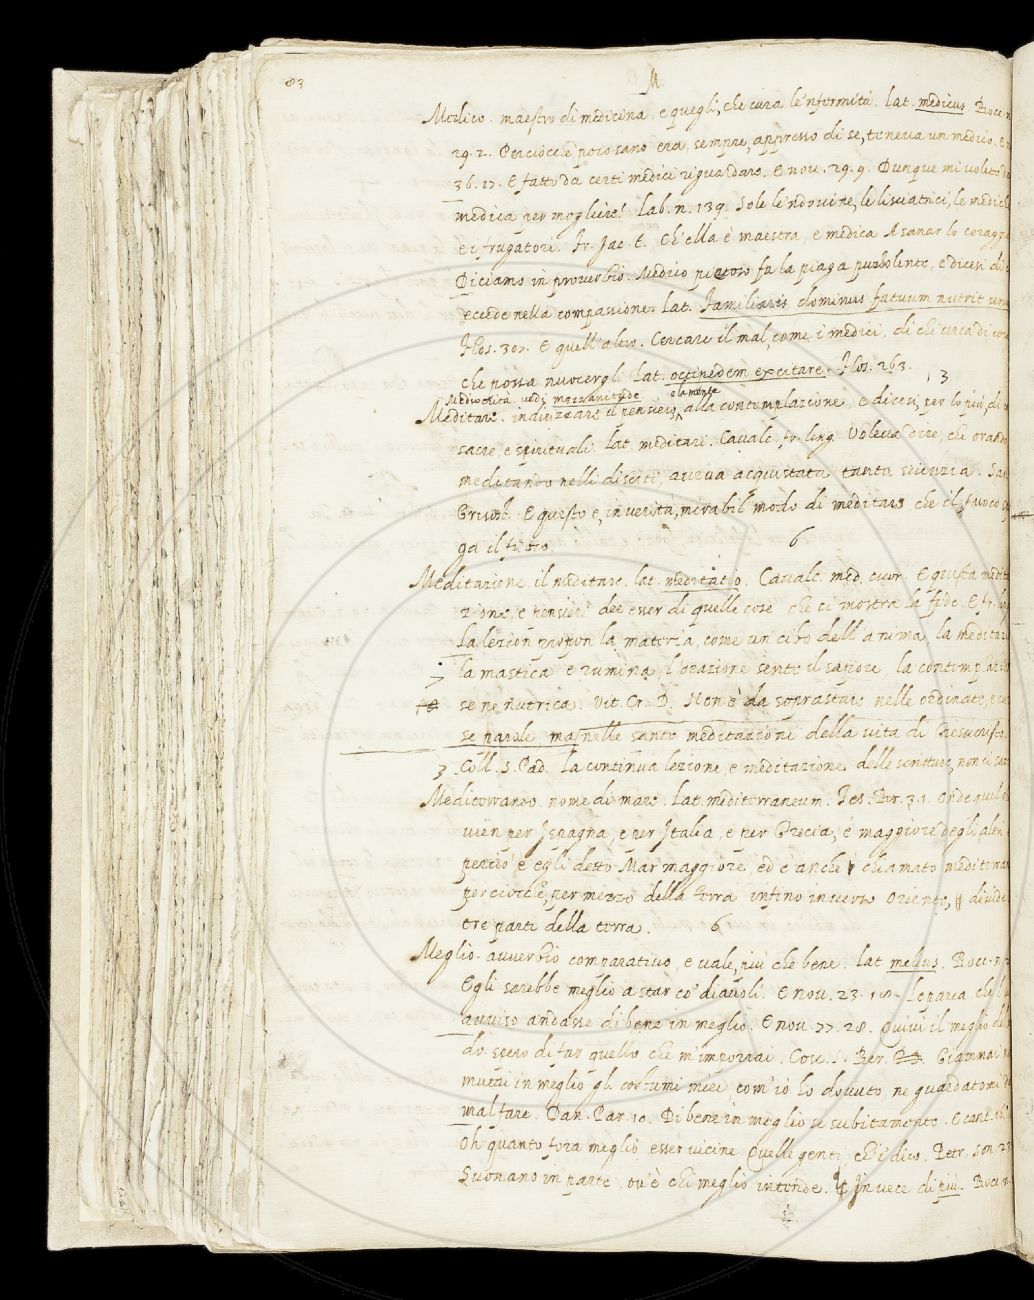 83
M
Medico. maestro di medicina, e quegli, che cura le 'nfermità. Lat. medicus. Bocc. n.
29. 2. Perciocchè poco sano era, sempre, appresso di se, teneva un medico. E n
36. 17. E fatto da certi medici riguardare. E nov. 29. 9. Dunque mi volete da
medica per mogliere! Lab. n. 139. Sole le 'ndovine, le lisciatrici, le mediche
e i frugatori. Fr. Jac. T. Ch'ella è maestra, e medica A sanar lo coragg
Diciamo in proverbio. Medico pietoso fa la piaga puzzolente, e dicesi di
eccede nella compassione. Lat. Familiaris dominus fatuum nutrit serv
Flos. 307. E quell'altro. Cercare il mal, come i medici, di chi cerca di co
che possa nuocergli. Lat. occinedem excitare. Flos. 263. 3
Mediocrità, vedi mezzanitade elamente
Meditare. indirizzare il pensiero, alla contemplazione e dicesi, per lo più, di
sacre, e spirituali. Lat. meditari. Cavalc. fr. ling. Voleva dire, che orando
meditando nelli diserti, aveva acquistata tanta scienzia. San
Grisost. E questo è, in verità, mirabil modo di meditare che il fuoco
ga il fuoco. 6
Meditazione. il meditare. Lat. meditatio. Cavalc. med. cuor. E questa medita
zione, e pensieri dee esser di quelle cose che ci mostra la fede. E fr. ling
La lezion propon la materia, come un cibo dell'anima, la meditazi
la mastica e rumina l'orazione sente il sapore, la contemplazio
se ne nutrica. Vit. Cr. D. Non è da soprastare nelle ordinate, e co
se parole, ma nelle sante meditazioni della vita di Giesucristo.
3 Coll. S. Pad. La continua lezione, e meditazione delle scritture, non ci sar
Mediterraneo. nome di mare. Lat. mediterraneum. Tes. Br. 3. 1. Onde quel
vien per Ispagna, e per Italia, e per Grecia, è maggiore degli altri
perciò è egli detto Mar maggiore, ed è anche chiamato mediterran
perciocchè, per mezzo della terra infino inverso Oriente, devide
tre parti della terra. 6
Meglio. avverbio comparativo, e vale, più che bene. Lat. melius. Bocc. n.
Egli sarebbe meglio a star co' diavoli. E nov. 23. 18. Le parea che l
avviso andasse di bene in meglio. E nov. 77. 28. Quivi il meglio de
do. spero di far quello che m'imporrai. Com. S. Ber. Giammai n
mutai in meglio gli costumi miei, com'io ho dovuto, ne guardatomi da
mal fare. Dan. Par. 10. Di bene in meglio sì subitamente. E cant. 16.
Oh quanto fora meglio esser vicine Quelle genti, ch'i' dico. Petr. Son. 23
Suonano in parte, ov'è chi meglio intende. In vece di più. Bocc. n.